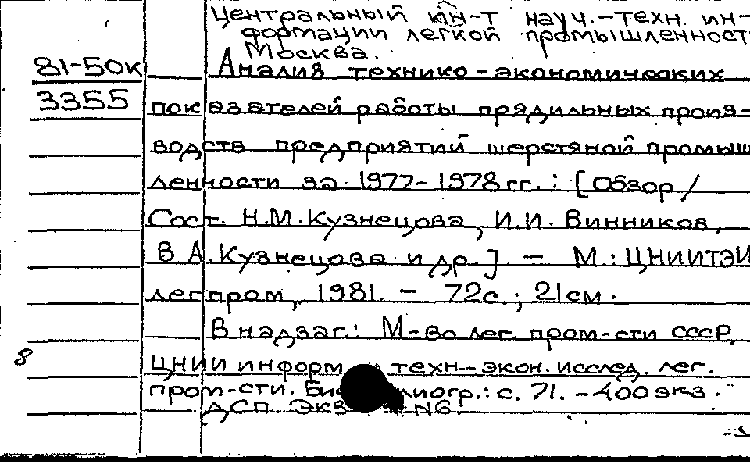 Центральный ин-т науч.-техн. ин-
формации легкой промышленност
Москва.
81-50к Анализ технико-экономических
3355 показателей работы прядильных произ-
водств предприятий шерстяной промыш
ленности за 1977-1978 гг. : [Обзор /
Сост. Н.М.Кузнецова, И.И. Винников,
В А.Кузнецова и др.] - М.: ЦНИИТЭИ
легпром, 1981. - 72с.; 21см.
В надзаг.: М-во лег. пром-сти СССР,
8 ЦНИИ информ техн-экон. исслед. лег.
пром-сти. : с. 71. -400экз.
ДСП. ЭКЗ N6